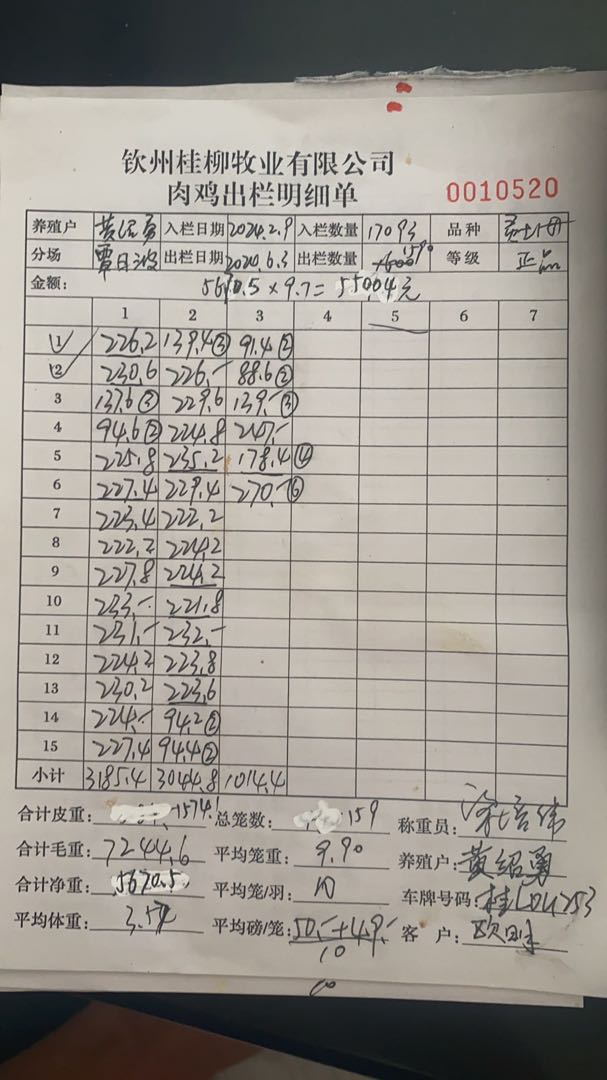 钦州桂柳牧业有限公司
肉鸡出栏明细单
0010520
养殖户 黄绍勇 入栏日期 2024.2.9 入栏数量 17093 品种
分场 覃日波 出栏日期 2020.6.3 出栏数量 1590 等级 正品
金额: 5670.5×9.7=55004元
1 2 3 4 5 6 7
1 226.2 139.4③ 91.4②
2 230.6 226.- 88.6②
3 137.6③ 229.6 139.-③
4 94.6② 224.8 247.-
5 225.8 235.2 178.4④
6 227.4 229.4 270.-⑥
7 223.4 222.2
8 222.2 224.2
9 227.8 224.2
10 233.- 221.8
11 231.- 232.-
12 224.2 223.8
13 230.2 223.6
14 224.- 94.2②
15 227.4 94.4②
小计 3185.4 3044.8 1014.4
合计皮重: 1574.1 总笼数: 159 称重员:
合计毛重: 7244.6 平均笼重: 9.90 养殖户: 黄绍勇
合计净重: 5670.5 平均笼/羽: 10 车牌号码:
平均体重: 3.57 平均磅/笼: 50.-+49.- 客 户:
10